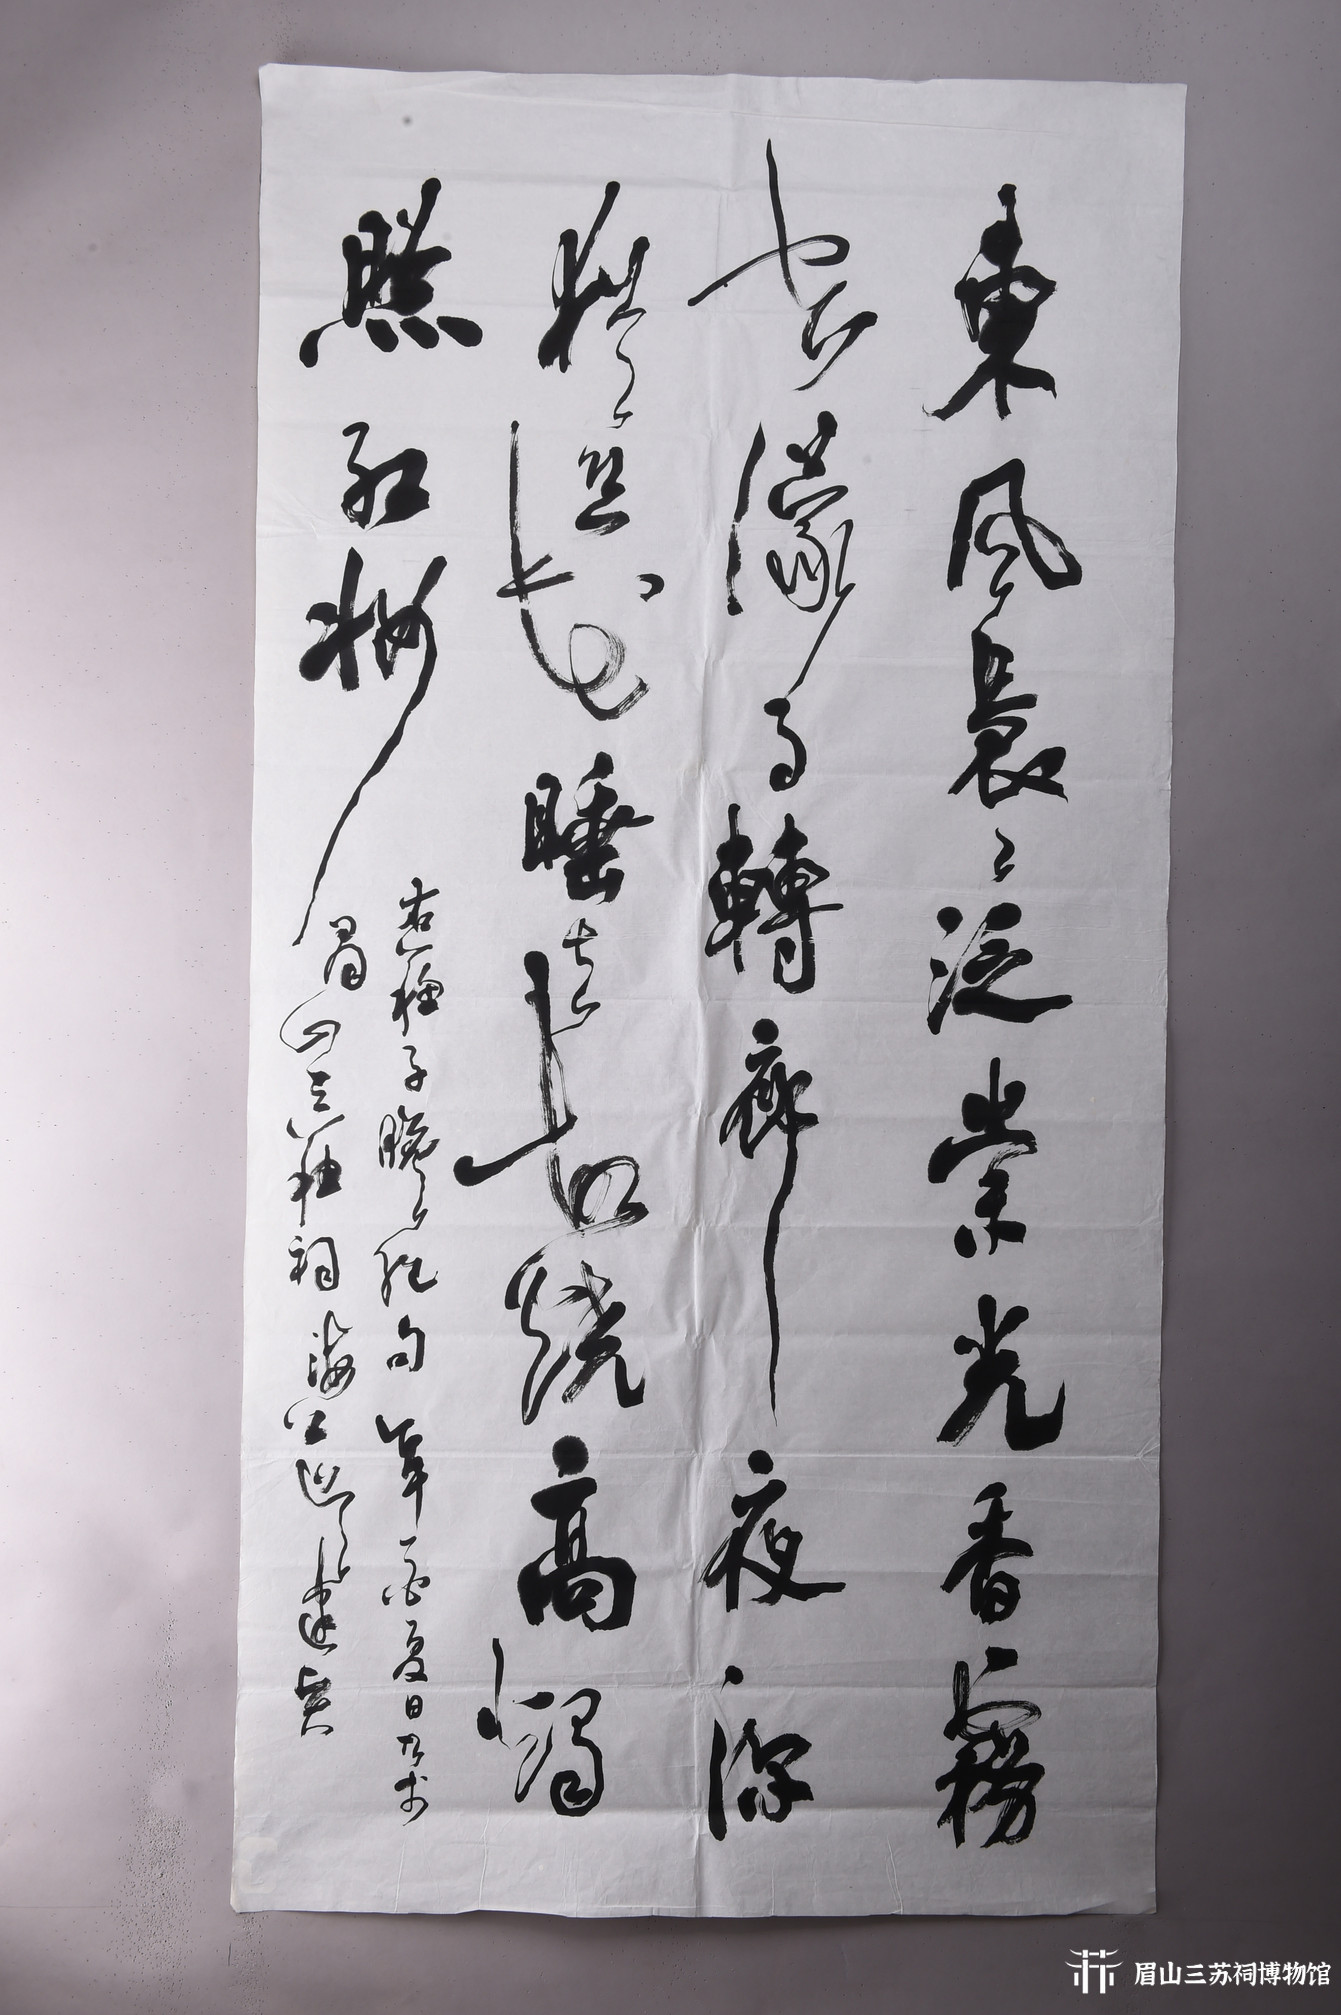 東風裊〻泛崇光香霧
空濛月轉廊夜深
花睡去故燒高燭
照紅妝
右蘇子瞻絕句 辛酉夏日於
眉山三蘇祠 海
眉山三苏祠博物馆